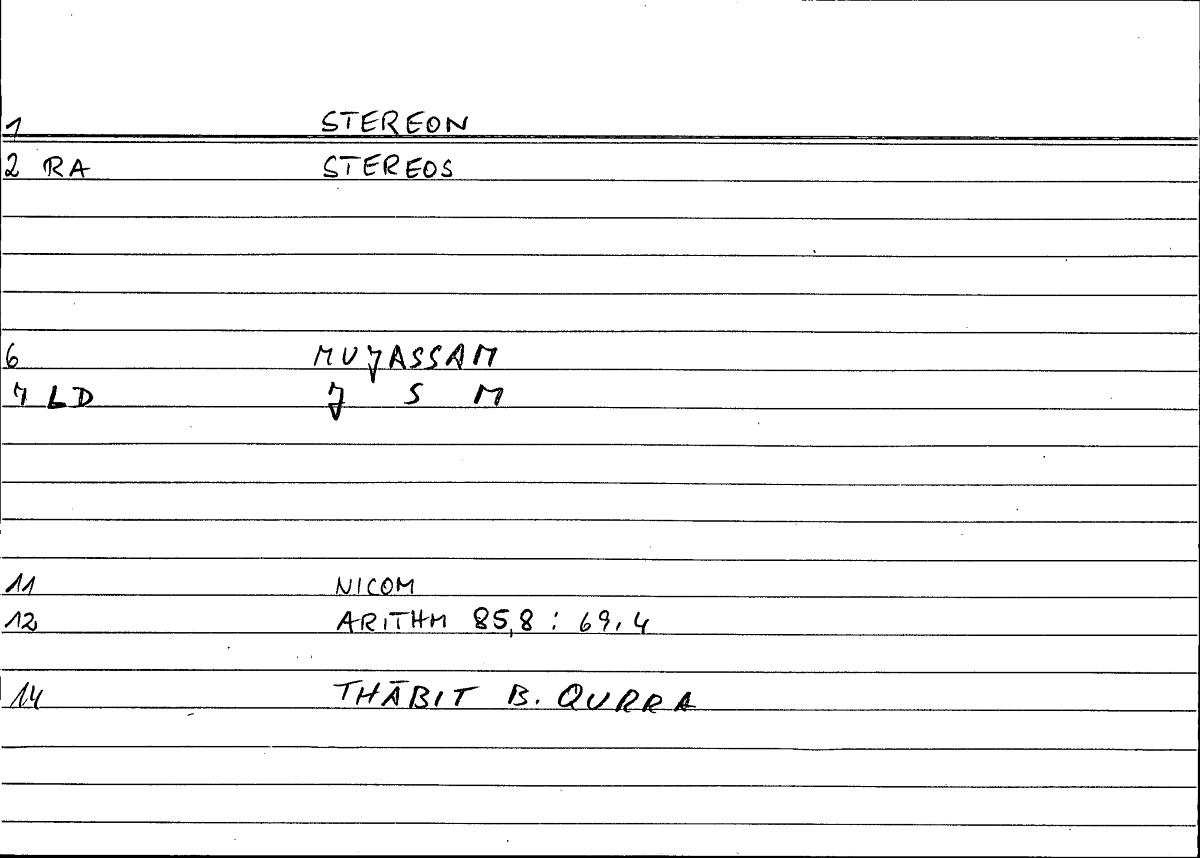 1 STEREON
2 RA STEREOS
6 MUJASSAM
7 LD J S M
11 NICOM
12 ARITHM 85,8 : 69,4
14 THĀBIT B. QURRA